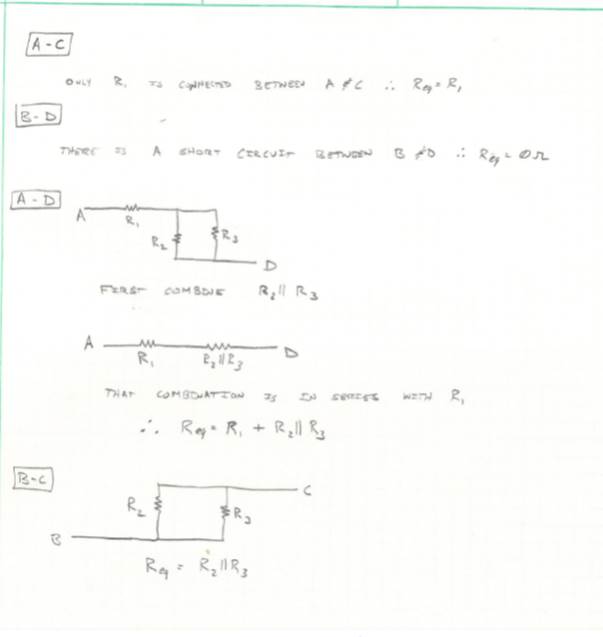 A-C
ONLY R1 IS CONNECTED BETWEEN A & C ∴ Req = R1
B-D
THERE IS A SHORT CIRCUIT BETWEEN B & D ∴ Req = 0Ω
A-D
A R1
R2 R3
D
FIRST COMBINE R2 || R3
A D
R1 R2||R3
THAT COMBINATION IS IN SERIES WITH R1
∴ Req = R1 + R2||R3
B-C
C
R2 R3
B
Req = R2||R3